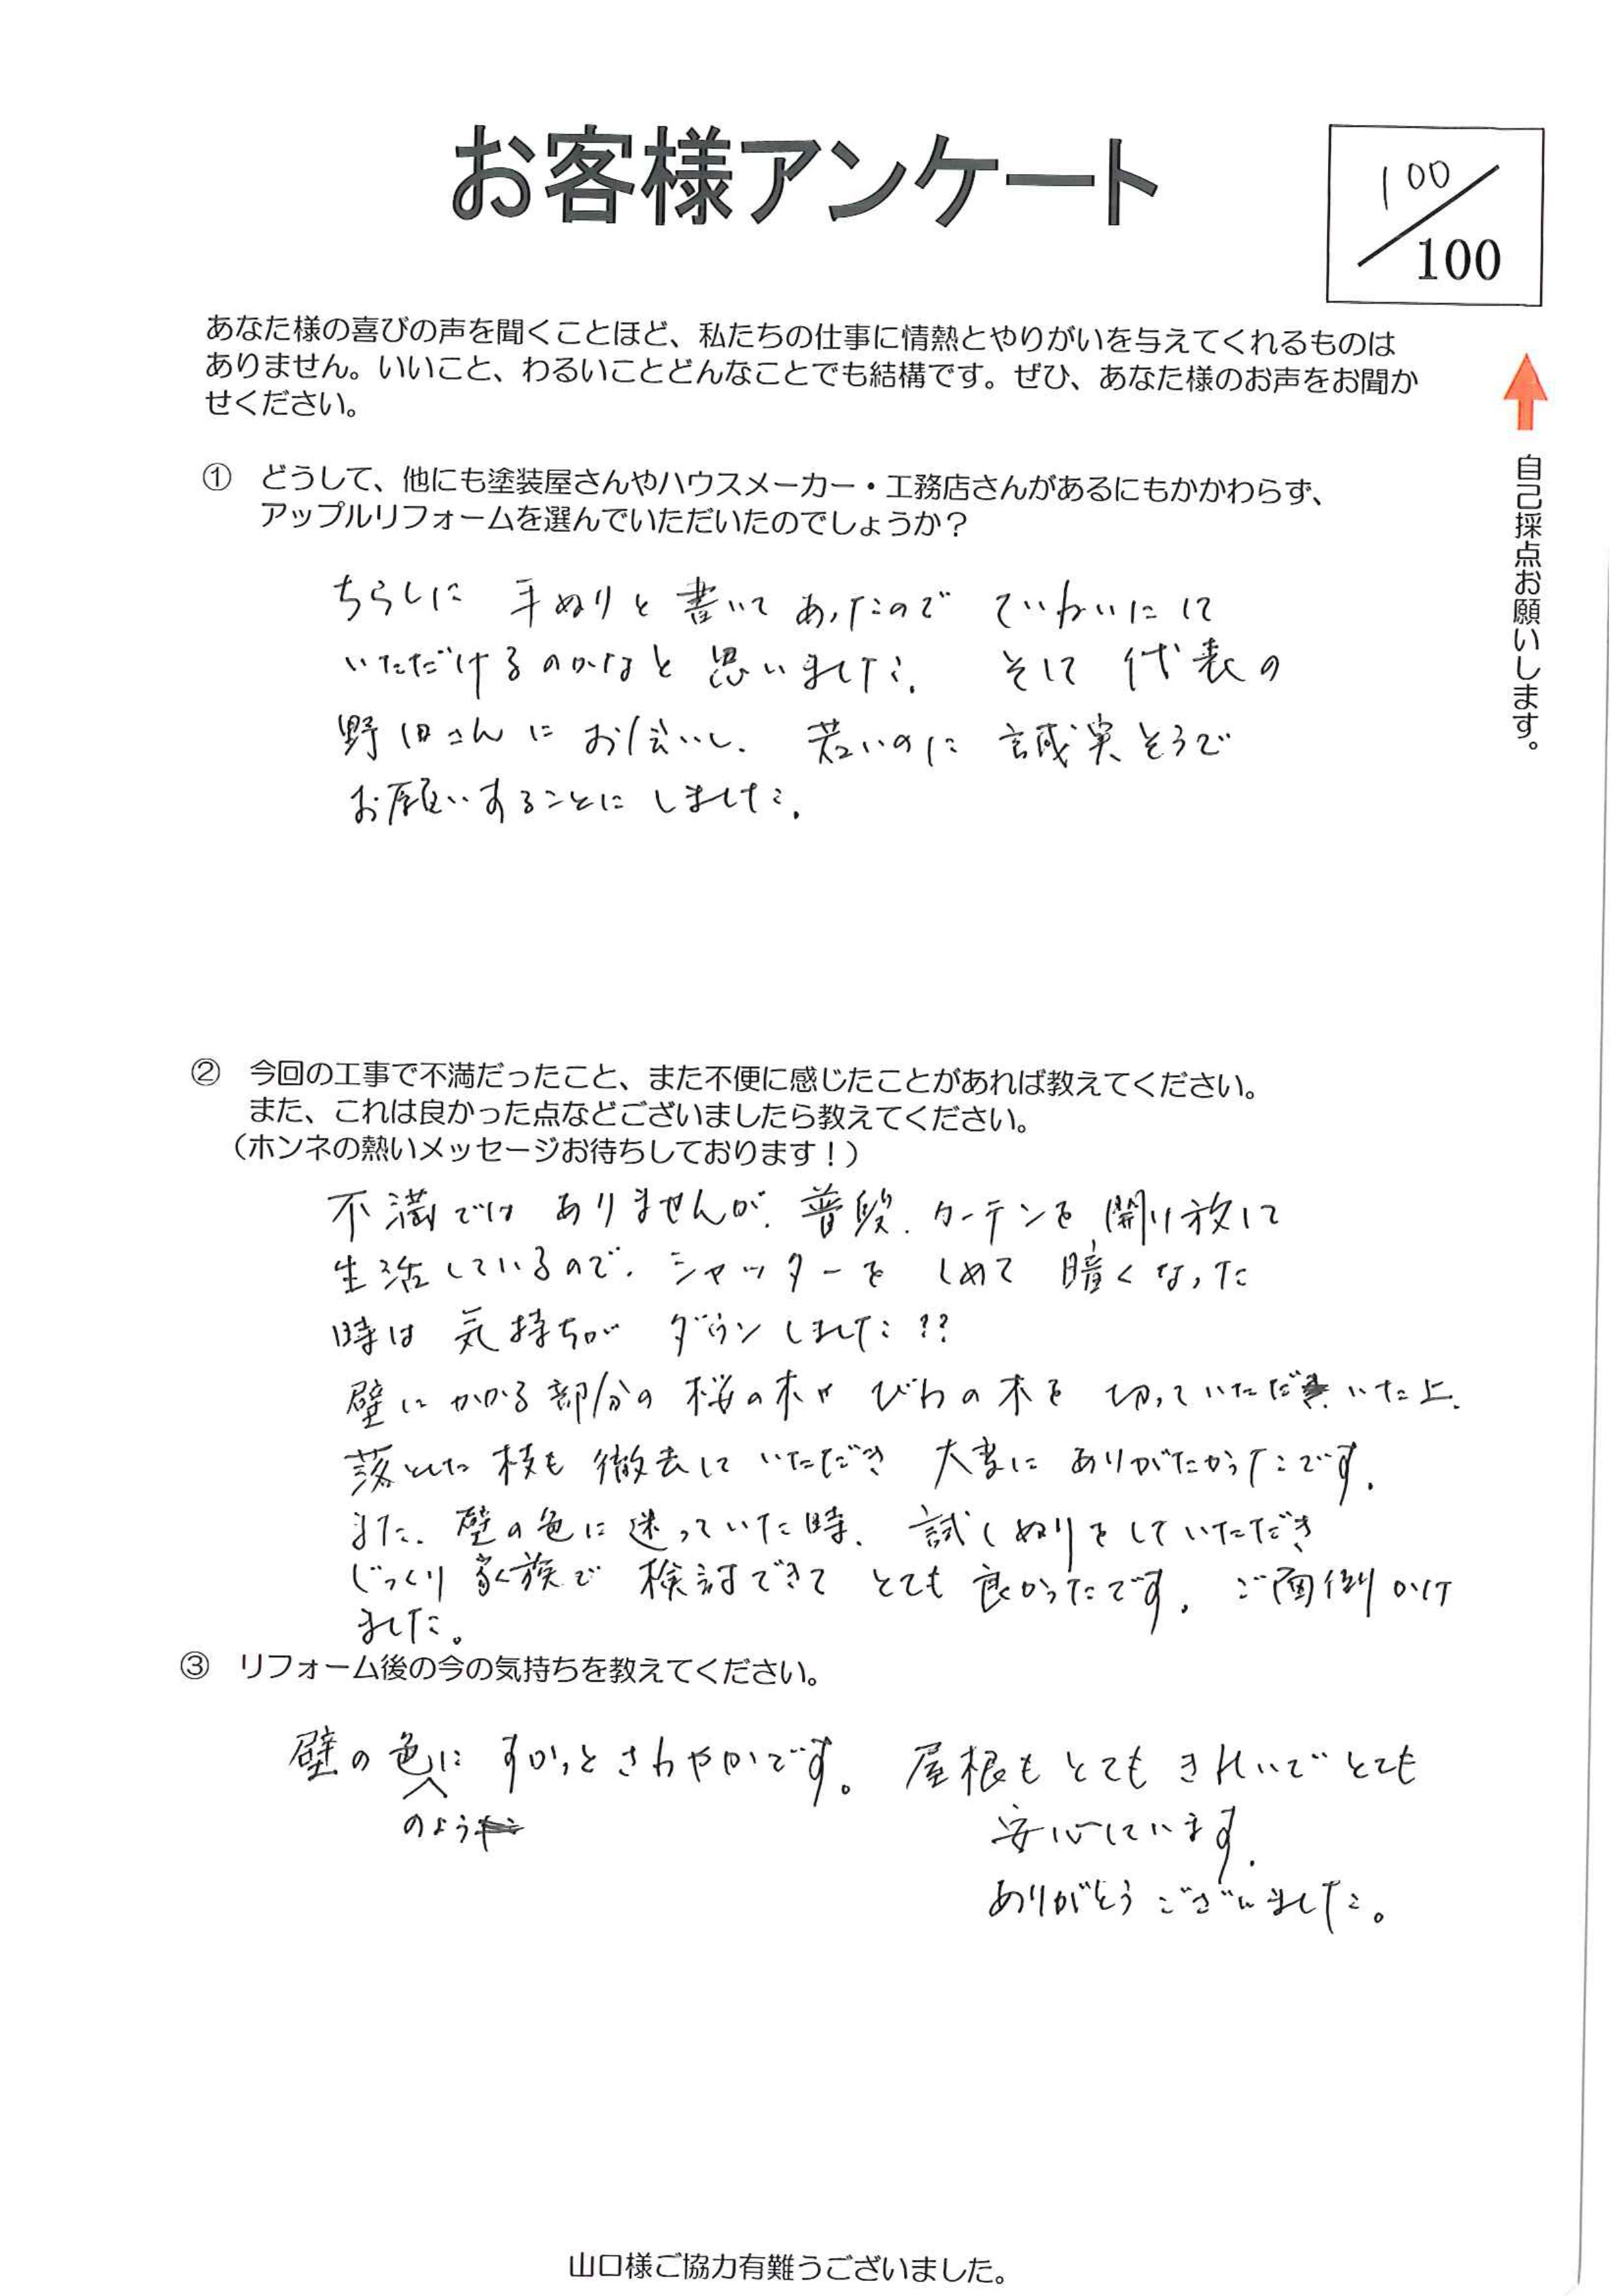 お客様アンケート
100
100
あなた様の喜びの声を聞くことほど、私たちの仕事に情熱とやりがいを与えてくれるものは
ありません。いいこと、わるいことどんなことでも結構です。ぜひ、あなた様のお声をお聞か
せください。
自己採点お願いします。
① どうして、他にも塗装屋さんやハウスメーカー・工務店さんがあるにもかかわらず、
アップルリフォームを選んでいただいたのでしょうか？
ちらしに 手ぬりと書いてあったので ていねいにして
いただけるのかなと思いました。 そして代表の
野田さんに お会いし、若いのに 誠実そうで
お願いすることにしました。
② 今回の工事で不満だったこと、また不便に感じたことがあれば教えてください。
また、これは良かった点などございましたら教えてください。
（ホンネの熱いメッセージお待ちしております！）
不満では ありませんが、普段、カーテンを 開け放して
生活しているので、シャッターを しめて 暗くなった
時は 気持ちが ダウンしました??
壁にかかる部分の 桜の木や びわの木を 切っていただいた上、
落とした枝も 撤去して いただき 大変に ありがたかったです。
また、壁の色に迷っていた時、試しぬりをしていただき
じっくり 家族で 検討できて とても 良かったです。ご面倒かけ
ました。
③ リフォーム後の今の気持ちを教えてください。
壁の色のように すかっとさわやかです。 屋根もとても きれいでとても
安心しています。
ありがとうございました。
山口様ご協力有難うございました。